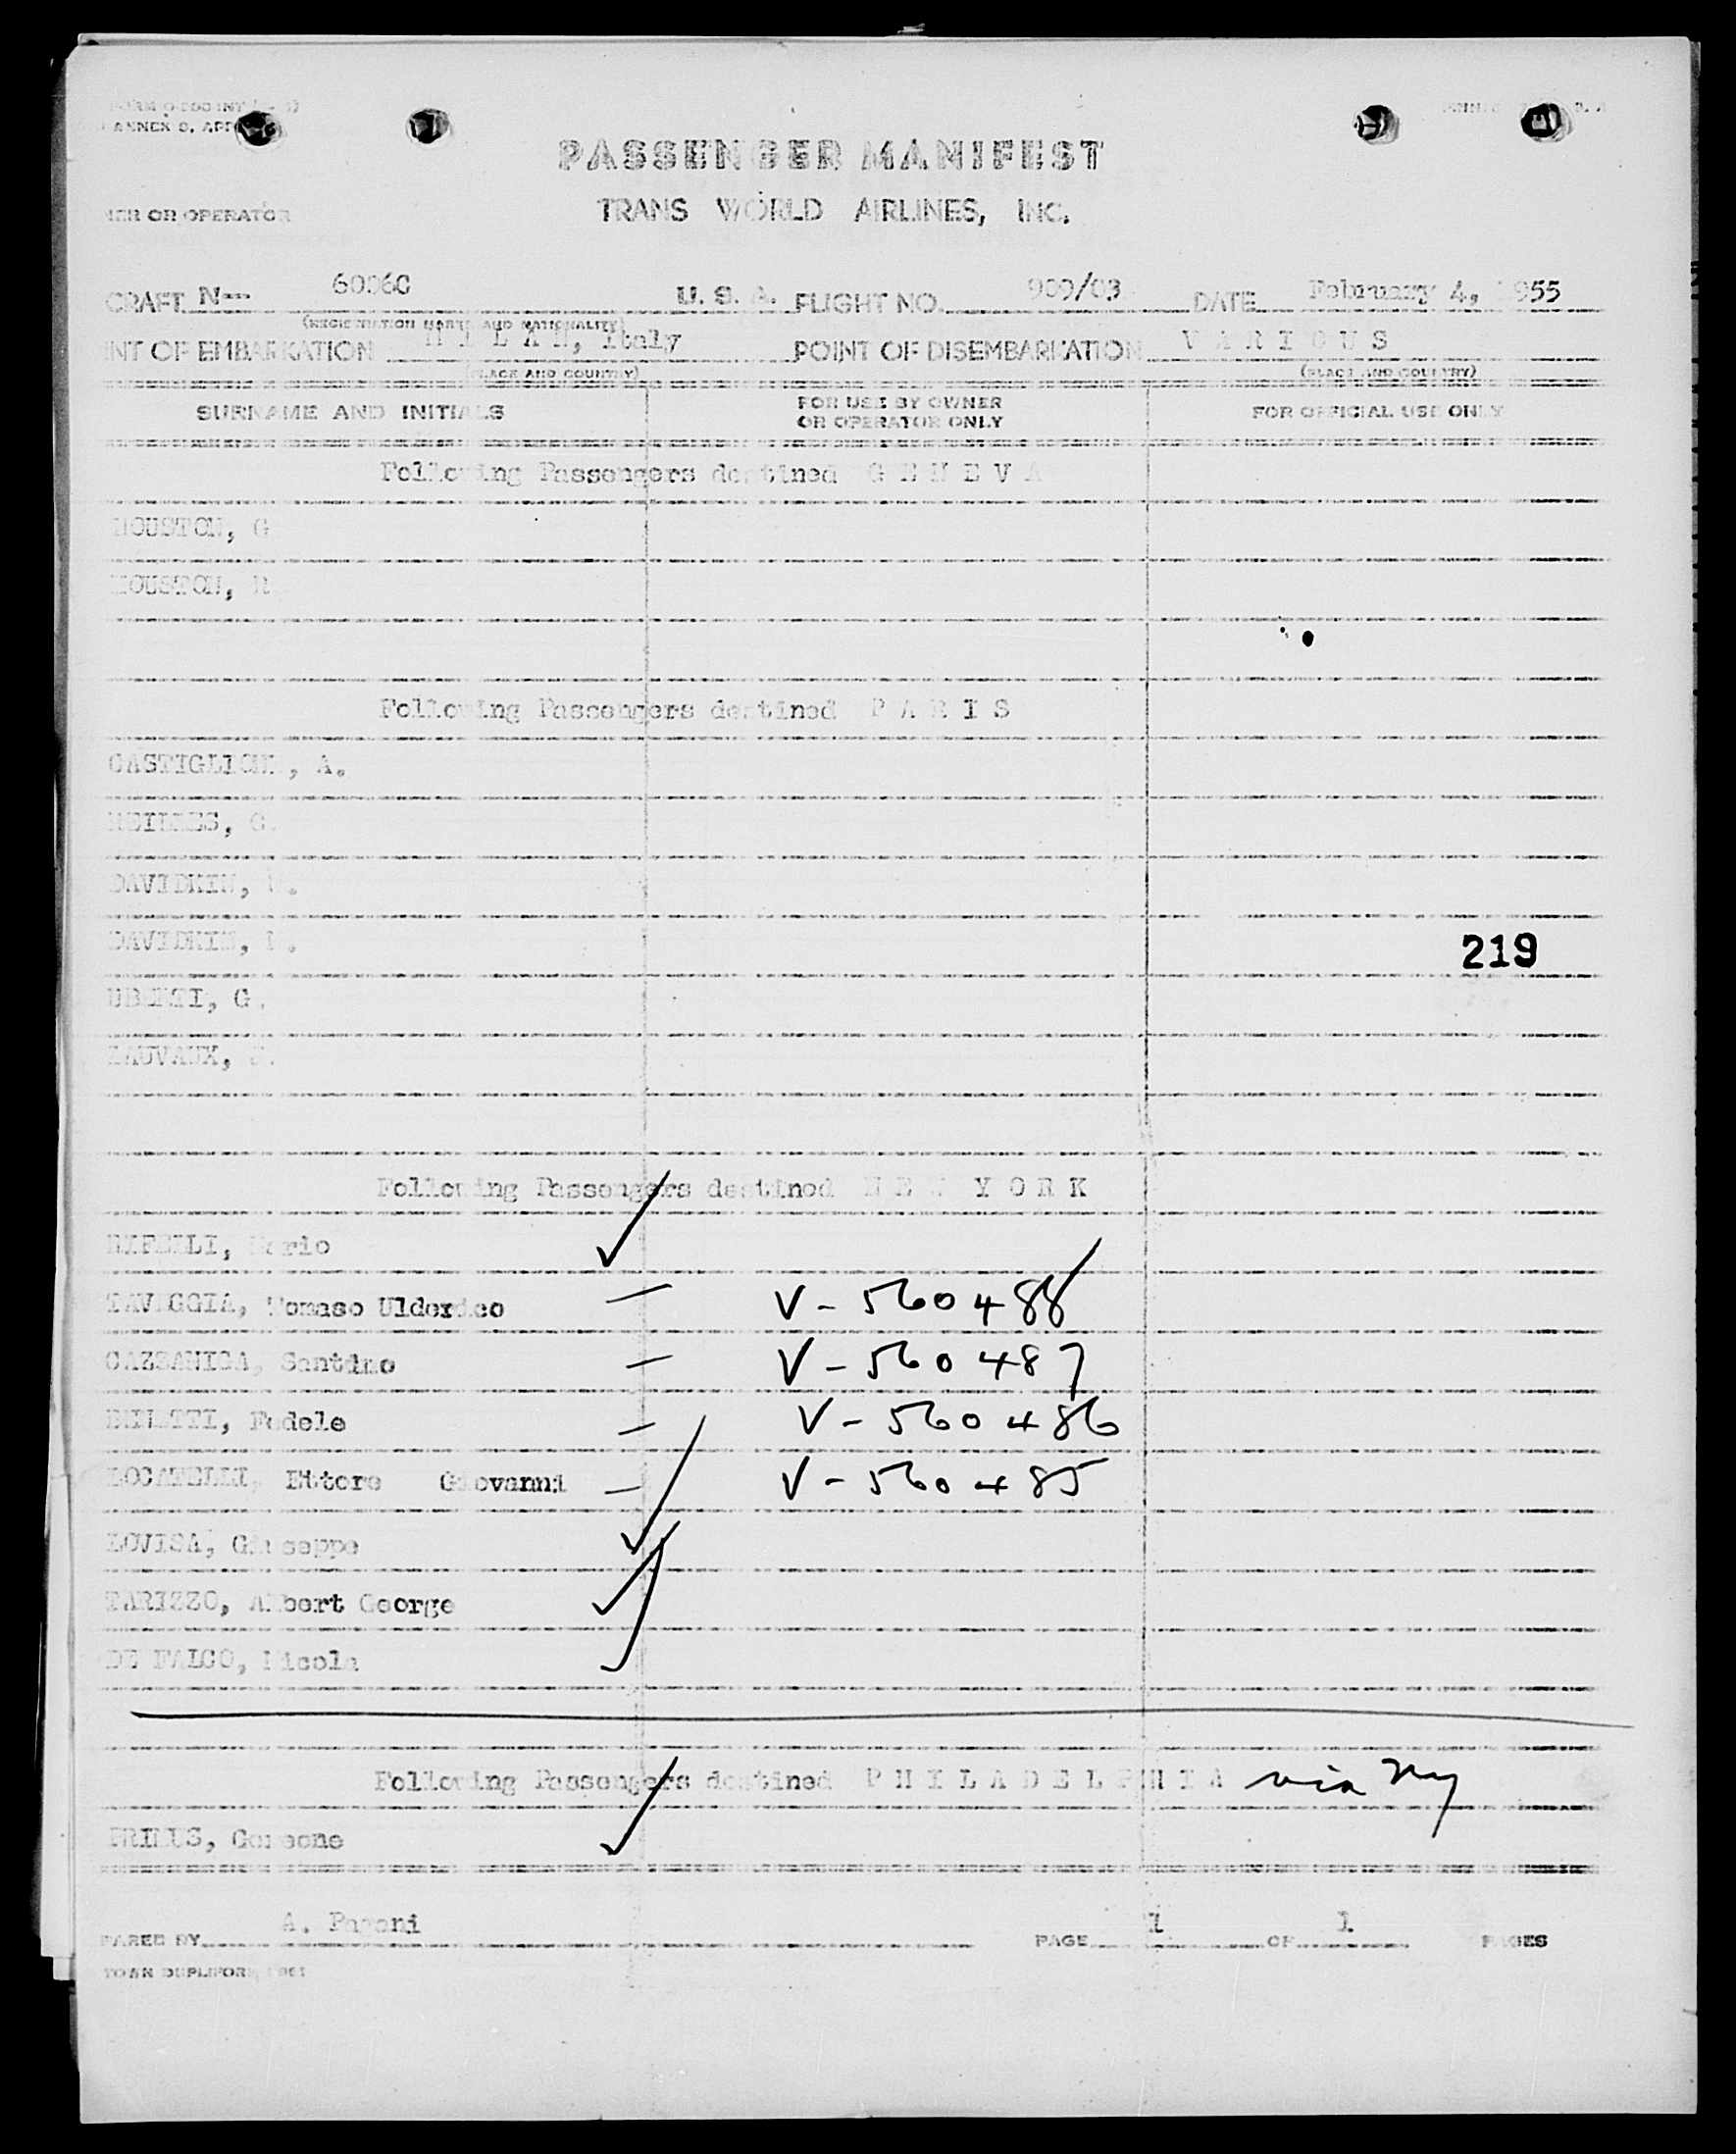 ANNEX 9, APP
PASSENGER MANIFEST
NER OR OPERATOR TRANS WORLD AIRLINES, INC.
CRAFT N-- U. S. A. FLIGHT NO. 909/03 DATE February 4, 1955
(REGISTRATION MARKS AND NATIONALITY)
INT OF EMBARKATION M I L A N, Italy POINT OF DISEMBARKATION V A R I O U S
(PLACE AND COUNTRY) (PLACE AND COUNTRY)
SURNAME AND INITIALS FOR USE BY OWNER OR OPERATOR ONLY FOR OFFICIAL USE ONLY
Following Passengers destined G E N E V A
HOUSTON, G
HOUSTON,
Following Passengers destined P A R I S
CASTIGLIONI, A.
G.
DAVIDKIN,
DAVIDKIN,
219
UBERTI, G.
LAUVAUX,
Following Passengers destined N E W Y O R K
Mario
TAVEGGIA, Tomaso Ulderico — V-560488
CAZZANIGA, Santino — V-560487
Fedele — V-560486
LOCATELLI, Ettore Giovanni — V-560485
LOVISA, Giuseppe
TARIZZO, Albert George
DE FALCO, Nicola
Following Passengers destined P H I L A D E L P H I A via NY
PRIMUS,
PARED BY A. Pagani PAGE 1 OF 1 PAGES